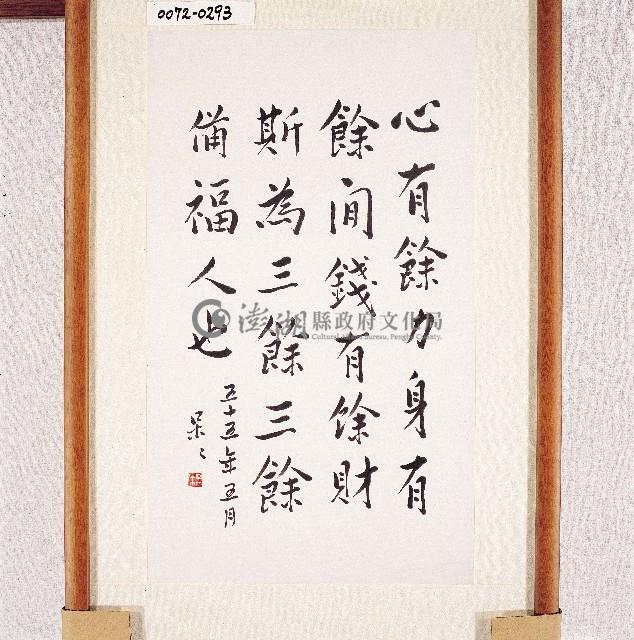 0072-0293
心有餘力身有
餘间錢有馀財
斯為三餘三餘
備福人也
五十五年五月
呆〻
澎湖縣政府文化局
Cultural Affairs Bureau, Penghu County.